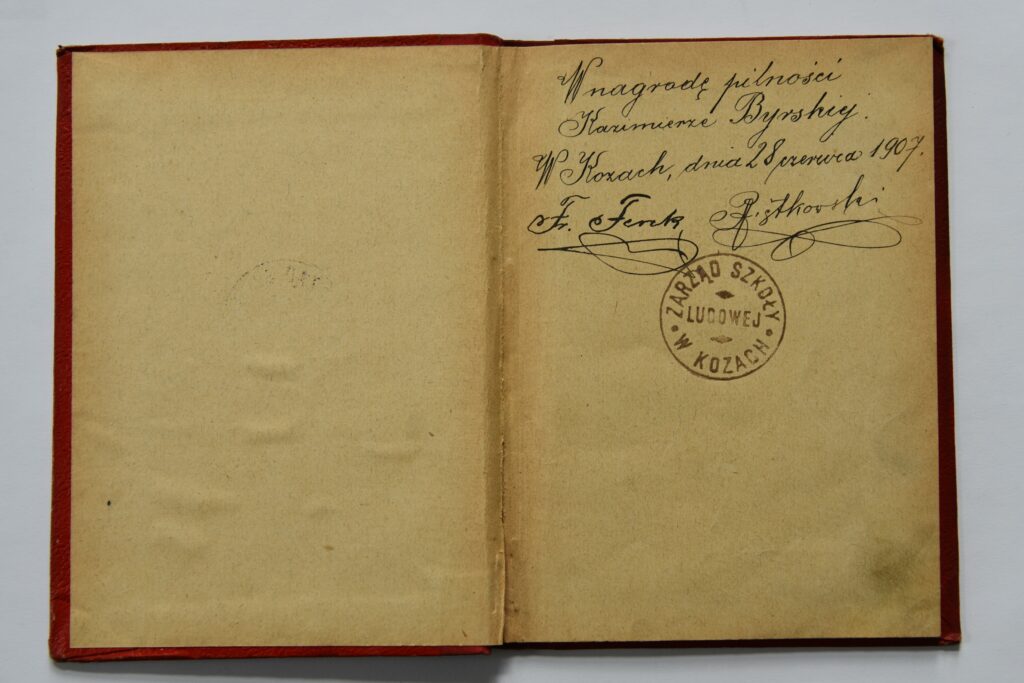 W nagrodę pilności
Kazimierze Byrskiej.
W Kozach, dnia 28 czerwca 1907.
Fr. Ferek
ZARZĄD SZKOŁY
LUDOWEJ
W KOZACH